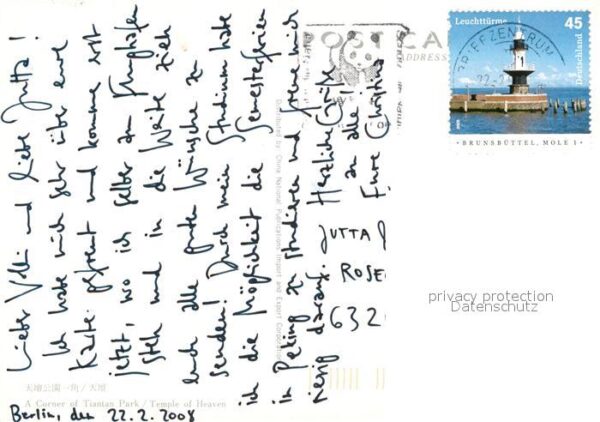 Lieber Volli und liebe Jutta!
Ich habe mich sehr über eure
Karte gefreut und komme erst
jetzt, wo ich selber am Flughafen
steh und in die Weite zieh
euch alle guten Wünsche zu
senden! Durch mein Studium hatte
ich die Möglichkeit die Semesterferien
in Peking zu studieren und freue mich
riesig darauf.
Herzliche Grüße
an alle!
Eure Christina
JUTTA
ROSE
632
POST CA
ADDRESS
BRIEFZENTRUM
22.2
Leuchttürme
45
Deutschland
BRUNSBÜTTEL, MOLE 1
privacy protection
Datenschutz
Distributed by China National Publications Import and Export Corporation
天壇公園一角/天壇
A Corner of Tiantan Park / Temple of Heaven
Berlin, den 22.2.2008